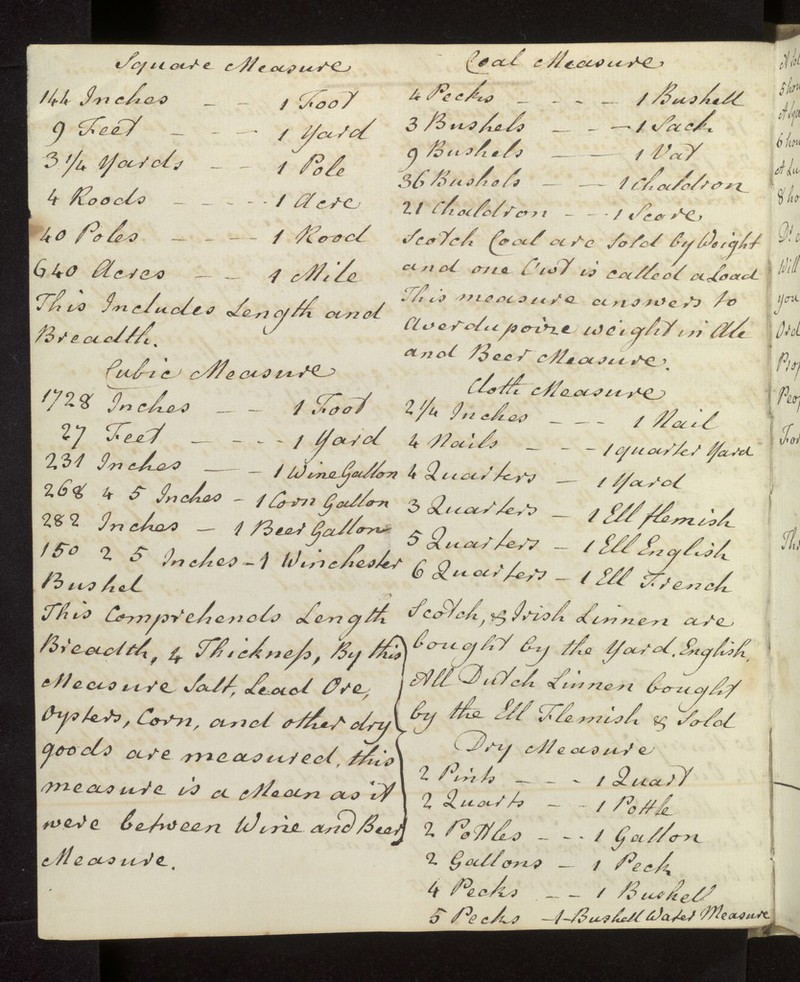 Square Measure
144 Inches - - 1 Foot
9 Feet - - - 1 Yard
3 1/4 Yards - - 1 Pole
4 Roods - - - - - 1 Acre
40 Poles - - - - 1 Rood
640 Acres - - 1 Mile
This Includes Length and
Breadth.
Cubic Measure
1728 Inches - - 1 Foot
27 Feet - - - - 1 Yard
231 Inches - - 1 Wine Gallon
268 4 5 Inches - 1 Corn Gallon
282 Inches - 1 Beer Gallon
150 2 5 Inches - 1 Winchester
Bushel
This Comprehends Length
Breadth, & Thickness, By this
Measure Salt, Lead Ore,
Oysters, Corn, and other dry
goods are measured, this
measure is a Mean as it
were between Wine and Beer
Measure.
Coal Measure
4 Pecks - - - - 1 Bushell
3 Bushels - - - 1 Sack
9 Bushels - - 1 Vat
36 Bushels - - 1 Chaldron
21 Chaldron - - - 1 Score
Scotch Coal are Sold by Weight
and one Cwt is called a Load
This measure answers to
Averdupoize weight in Ale
and Beer Measure.
Cloth Measure
2 1/4 Inches - - - 1 Nail
4 Nails - - - 1 quarter Yard
4 Quarters - 1 Yard
3 Quarters - 1 Ell flemish
5 Quarters - 1 Ell English
6 Quarters - 1 Ell French
Scotch, & Irish Linnen are
bought by the Yard. English.
All Dutch Linnen bought
by the Ell Flemish & Sold
Dry Measure
2 Pints - - - 1 Quart
2 Quarts - - 1 Pottle
2 Pottles - - - 1 Gallon
2 Gallons - 1 Peck
4 Pecks - - 1 Bushell
5 Pecks - 1 Bushell Water Measure